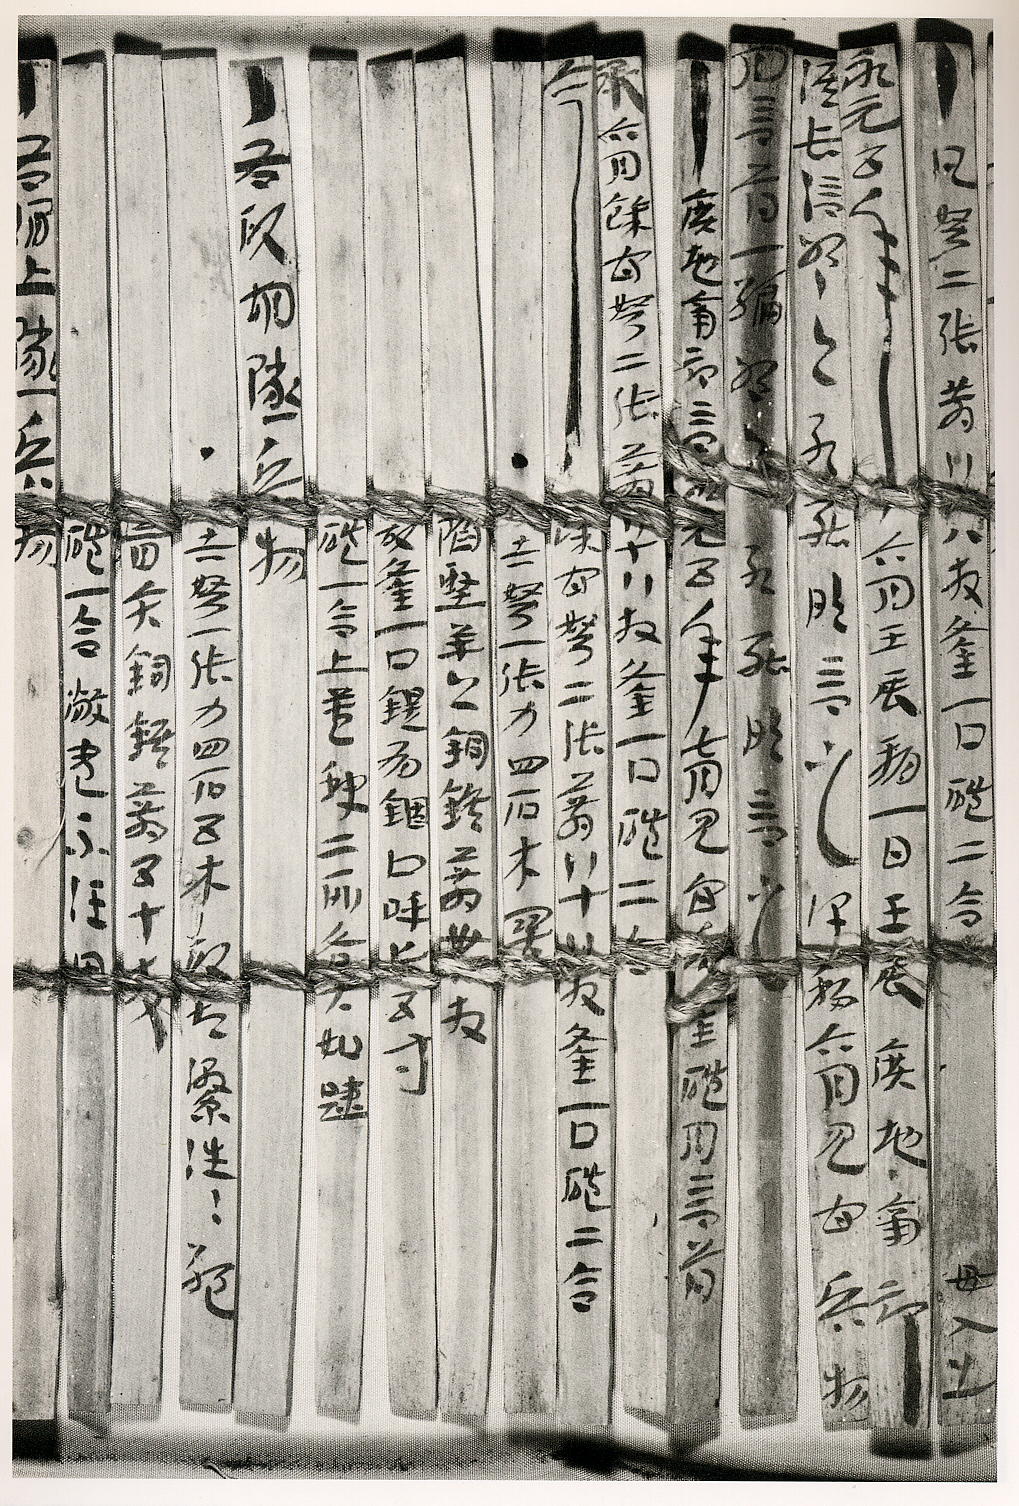 ●凡弩二張箭八十八枚釜一口磑二合 毋入出
永元五年六月壬辰朔一日壬辰廣地南部
候長信叩頭死罪敢言之謹移六月見官兵物
月言簿一編叩頭死罪敢言之
●廣地南部言永元五年七月見官兵釜磑月言簿
承六月餘官弩二張箭八十八枚釜一口磑二合
今餘官弩二張箭八十八枚釜一口磑二合
●赤弩一張力四石木關
陷堅羊頭銅鍭箭卅八枚
故釜一口鍉有錮口呼長五寸
磑一合上蓋缺二所各大如踈
●右破胡隧兵物
●赤弩一張力四石五木破起繳往往絕
盲矢銅鍭箭五十枚
磑一合敝盡不任用
●右澗上隧兵物